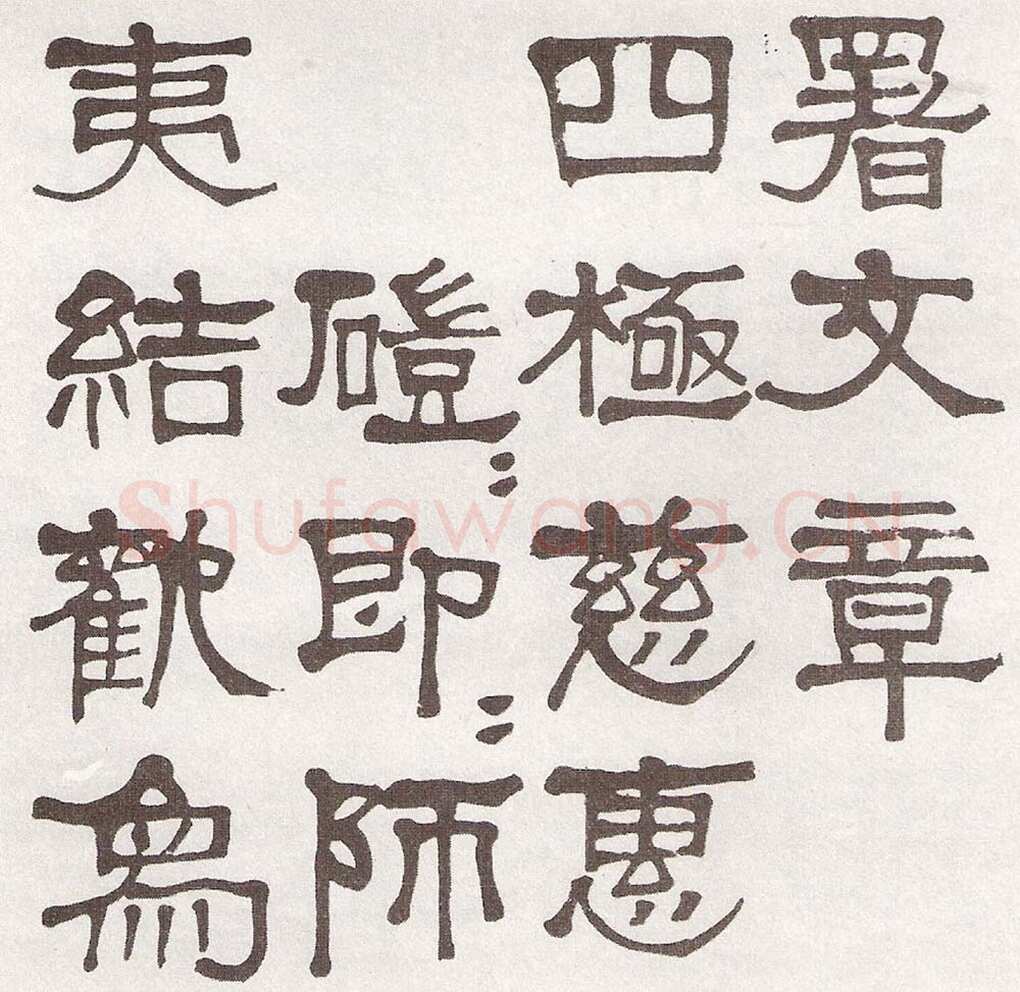 署文章
四極慈惠
磑〻即〻師
夷結歡爲
Shufawang.CN